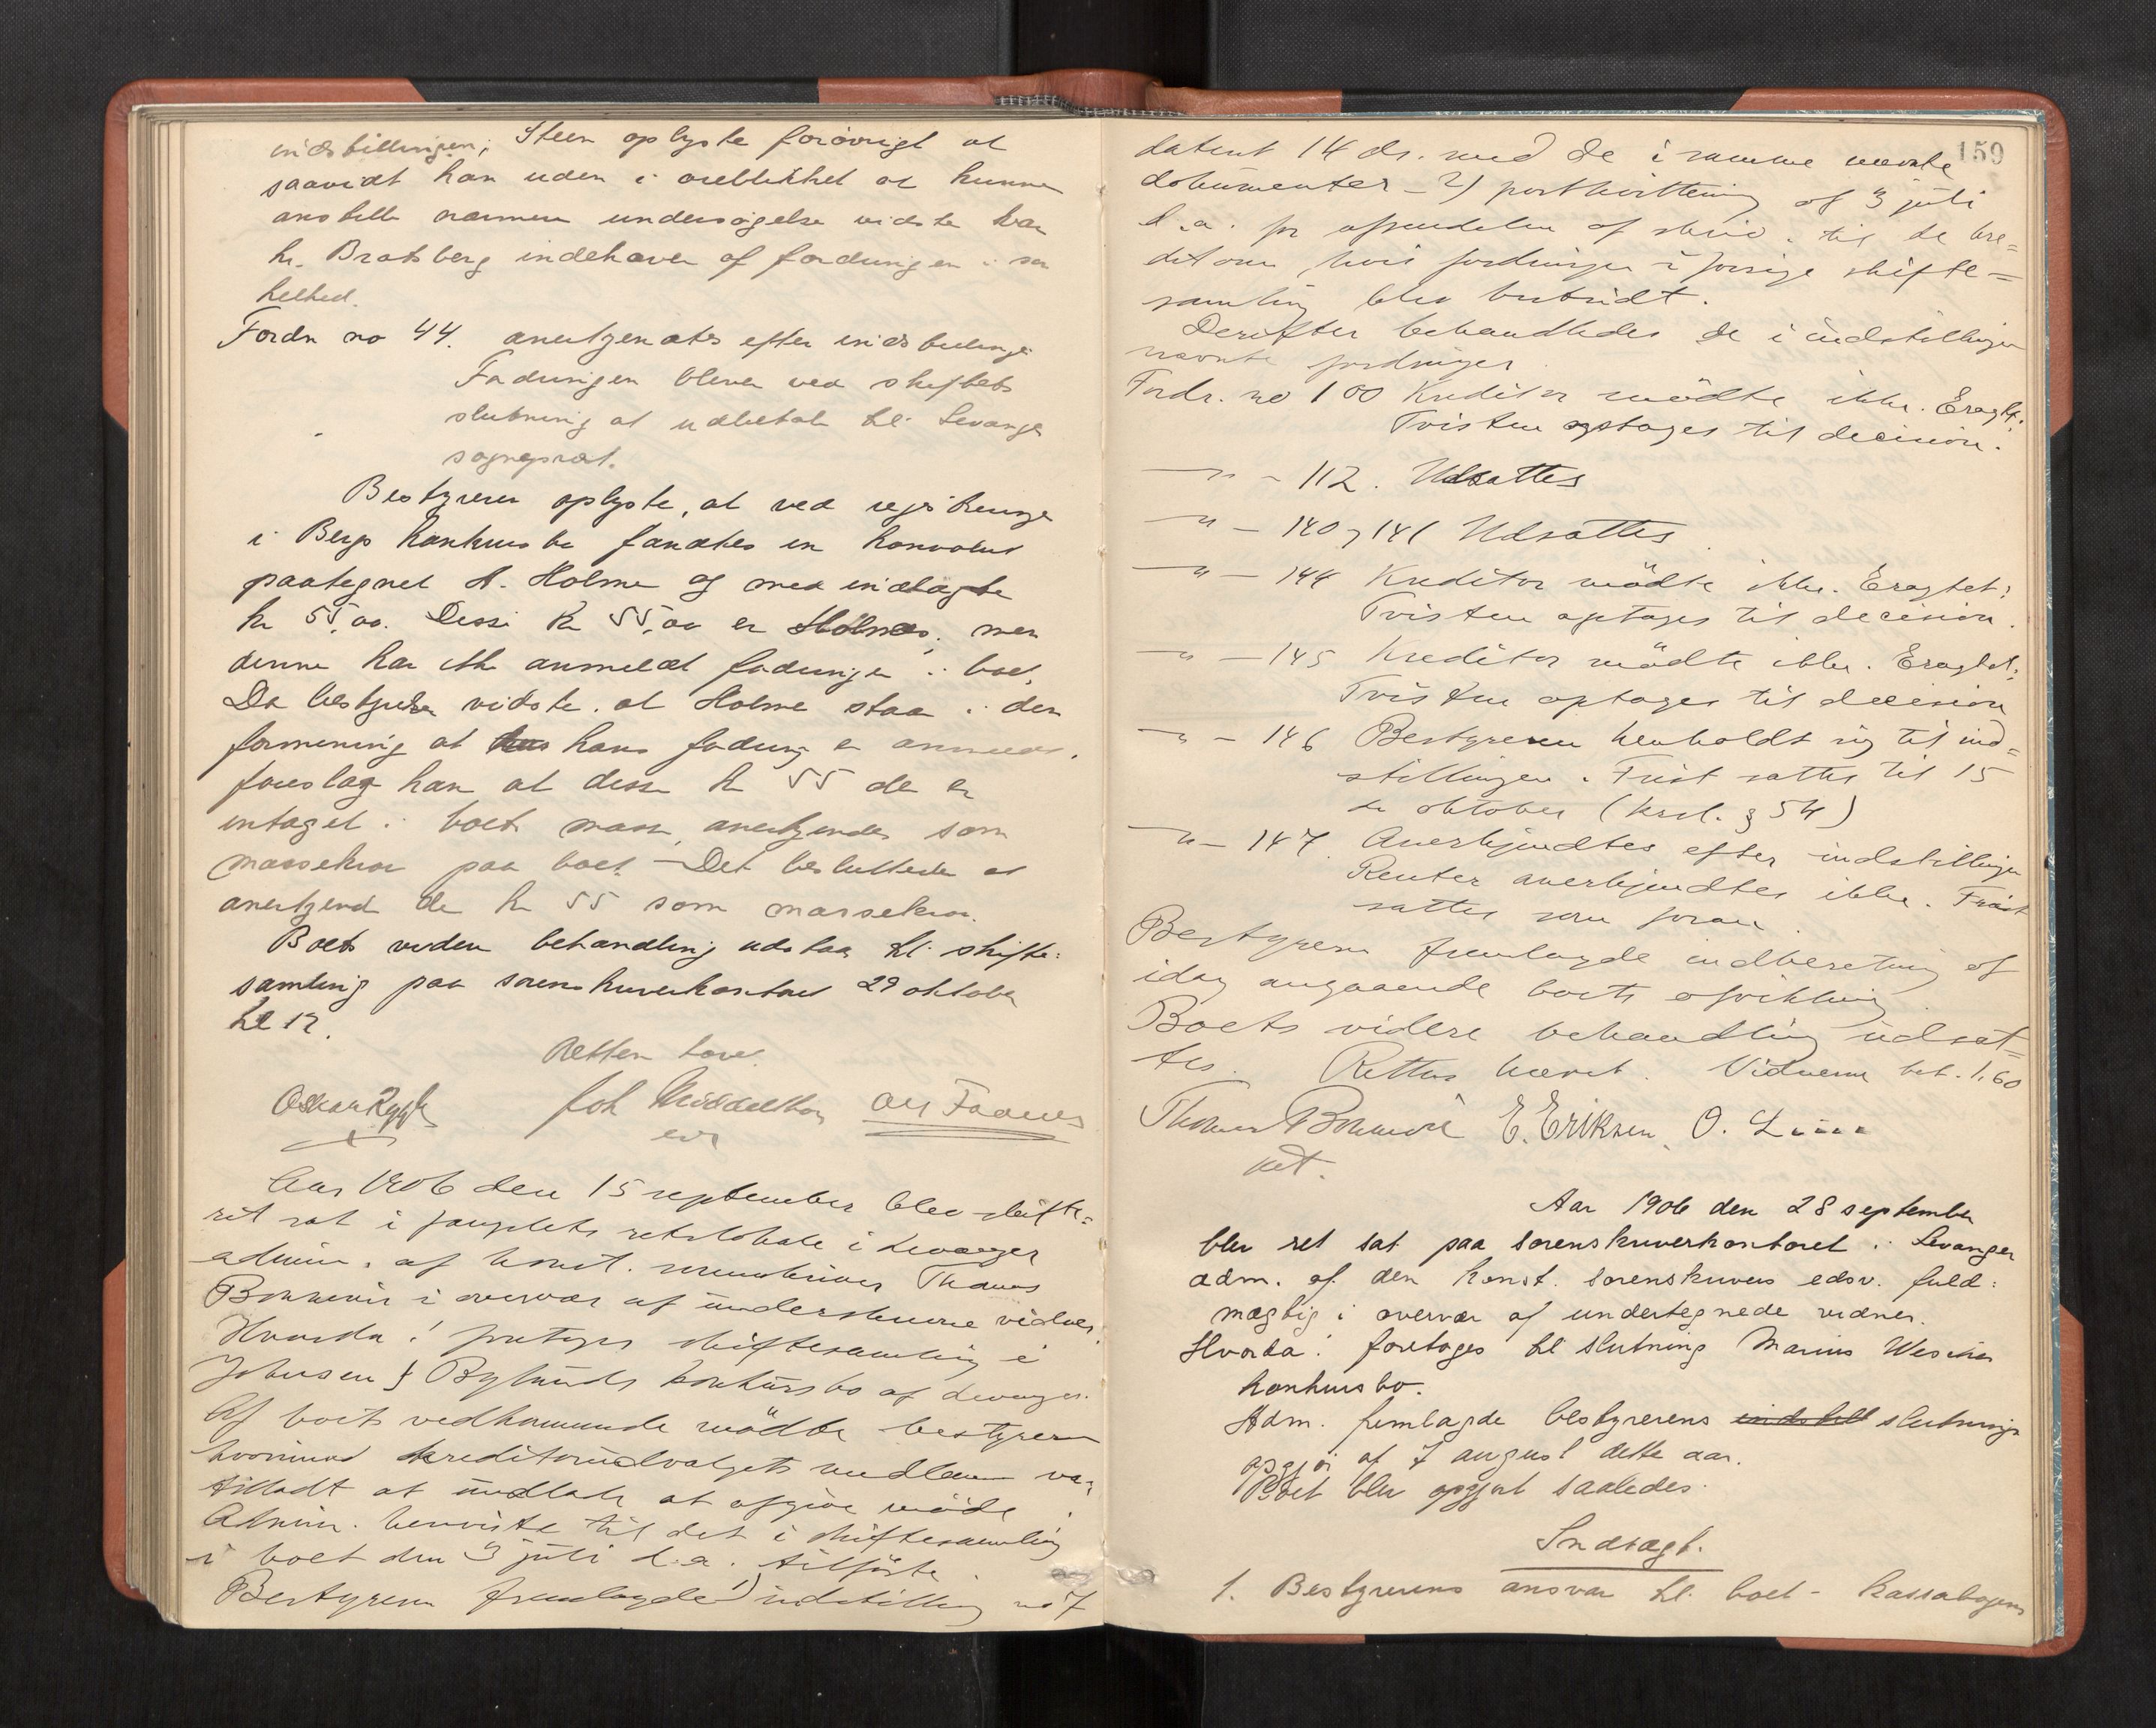 indstillingen; Steen oplyste forøvrigt at
saavidt han uden i øieblikket at kunne
anstille nærmere undersøgelse vidste var
hr. Bratsberg indehaver af fordringen i sin
helhed.
Fordr no 44. anerkjendtes efter indstillingen
Fordringen bliver ved skiftets
slutning at udbetale til Levanger
sogneprest.
Bestyreren oplyste, at ved registrering
i Bergs konkursbo fandtes en konvolut
paategnet A. Holme og med indlagte
kr 55,00. Disse kr 55,00 er Holmes, men
denne har ikke anmeldt fordringen i boet.
Da bestyreren vidste at Holme staar i den
formening at hans fordring er anmeldt,
foreslog han at disse kr 55 der er
intaget i boets masse, anerkjendes som
massekrav paa boet. – Det besluttedes at
anerkjende de kr 55 som massekrav.
Boets videre behandling udstaar til skifte=
samling paa sorenskriverkontoret 29 oktober
kl 12.
Retten hævet
Oskar Rygh Joh Middelthon
Aar 1906 den 15 september blev skifte=
ret sat i fængslets retslokale i Levanger
admin. af konst. sorenskriver Thomas
Bonnevie i overvær af underskrevne vidner.
Hvorda: foretoges skiftesamling i
Johnsen & Bylunds konkursbo af Levanger.
Af boets vedkommende mødte bestyreren
hvorimod kreditorudvalgets medlemmer var
tilladt at undlade at afgive møde.
Admin. henviste til det i skiftesamling
i boet den 3 juli d.a. tilførte.
Bestyreren fremlagde 1) indstilling no 7
159
dateret 14 ds. med de i samme nævnte
dokumenter – 2) postkvittering af 3 juli
d.a. for afsendelse af skriv. til de kre=
ditorer hvis fordringer i forrige skifte=
samling blev bestridt.
Derefter behandledes de i indstillingen
nævnte fordringer.
Fordr. no 100 Kreditor mødte ikke. Eragtet:
Tvisten optages til decision.
—"— 112. Udsattes
—"— 140 og 141 Udsattes.
—"— 144 Kreditor mødte ikke. Eragtet:
Tvisten optages til decision.
—"— 145 Kreditor mødte ikke. Eragtet:
Tvisten optages til decision
—"— 146 Bestyreren henholdt sig til ind=
stillingen. Frist sattes til 15
de oktober (krsl. § 54)
—"— 147. Anerkjendtes efter indstillingen
Renter anerkjendtes ikke. Frist
sattes som foran.
Bestyreren fremlagde indberetning af
idag angaaende boets afvikling.
Boets videre behandling udsat=
tes. Retten hævet. Vidnerne bet. 1,60
Thomas Bonnevie E. Eriksen O.
kst.
Aar 1906 den 28 september
blev ret sat paa sorenskriverkontoret i Levanger
adm. af den konst. sorenskrivers edsv. fuld=
mægtig i overvær af undertegnede vidner.
Hvorda: foretoges til slutning Marius
konkursbo.
Adm. fremlagde bestyrerens indstill slutnings
opgjør af 7 august dette aar.
Boet blev opgjort saaledes.
Indtægt.
1. Bestyrerens ansvar til boet – kassabogens